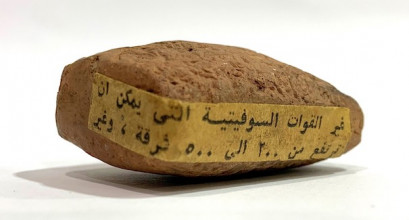 غير القوات السوفيتية التى يمكن ان
ترتفع من ٢٠٠ الى ٥٠٠ فرقة ، وغير